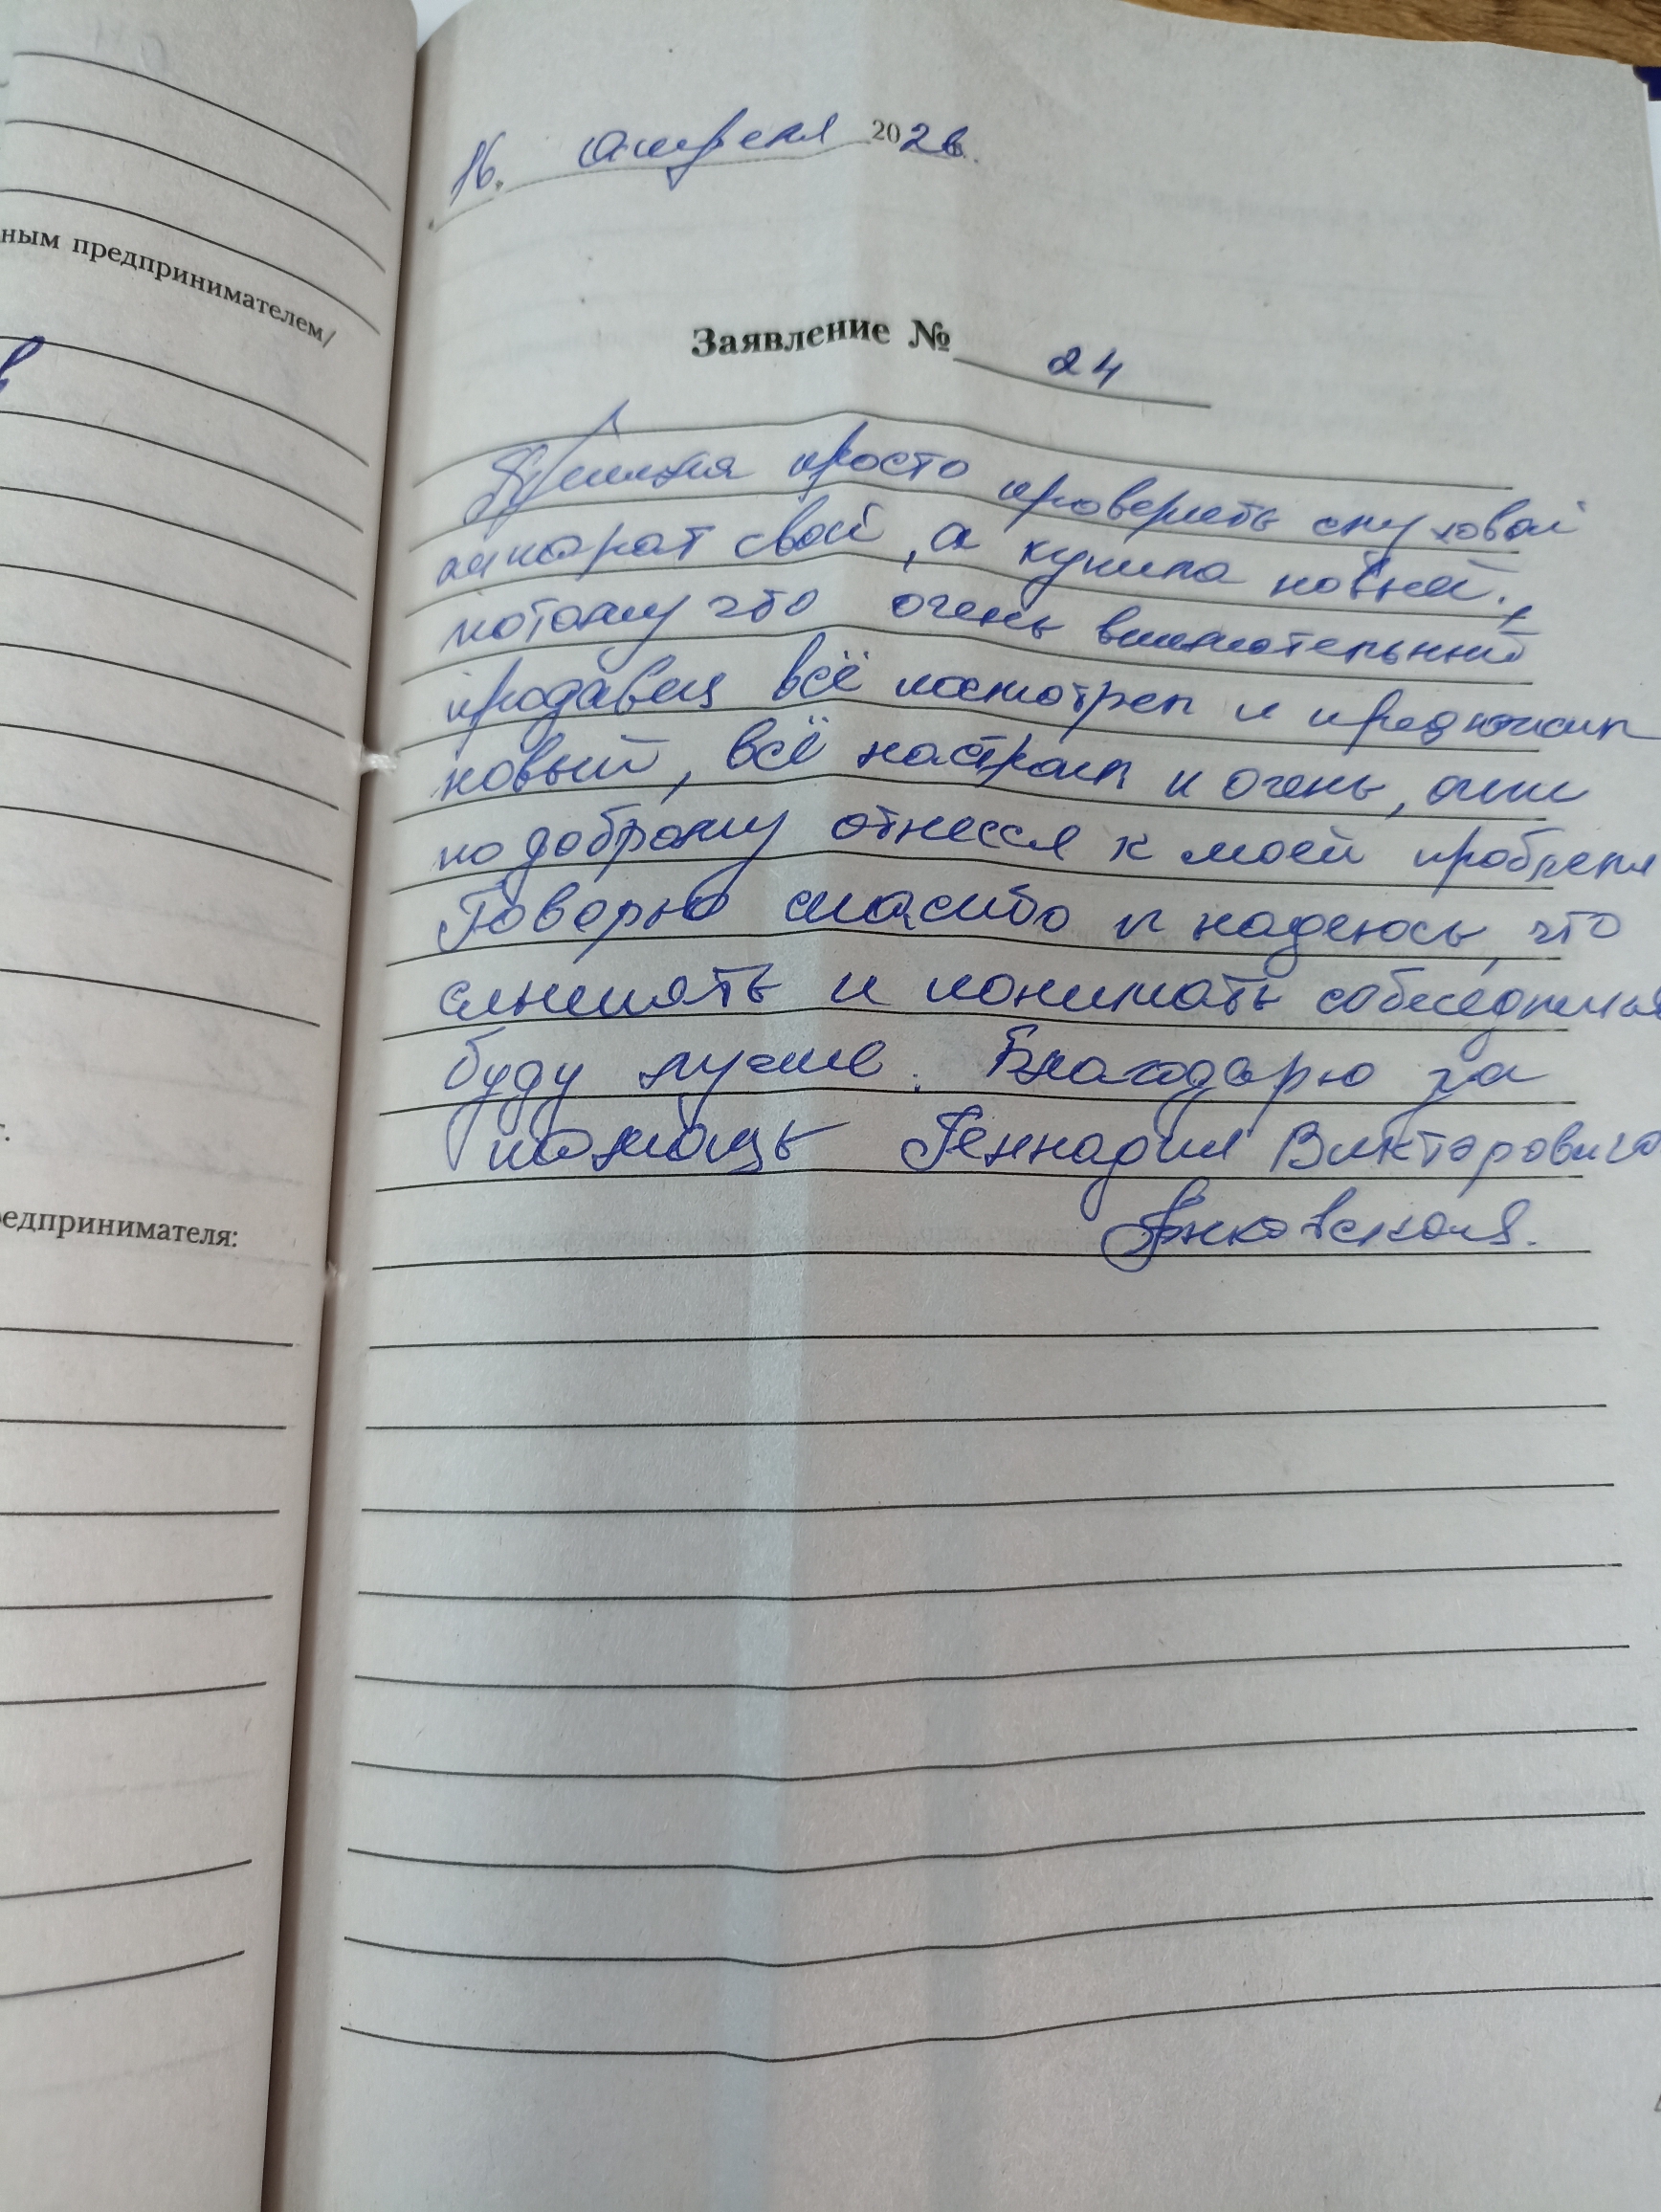 ным предпринимателем/
едпринимателя:
16. апреля 2026.
Заявление № 24
Пришла просто проверить слуховой
аппарат свой, а купила новый.,
потому что очень внимательный
продавец всё посмотрел и предложил
новый, всё настроил и очень, очень
по доброму отнесся к моей проблеме
Говорю спасибо и надеюсь, что
слышать и понимать собеседника
буду лучше. Благодарю за
помощь Геннадия Викторовича